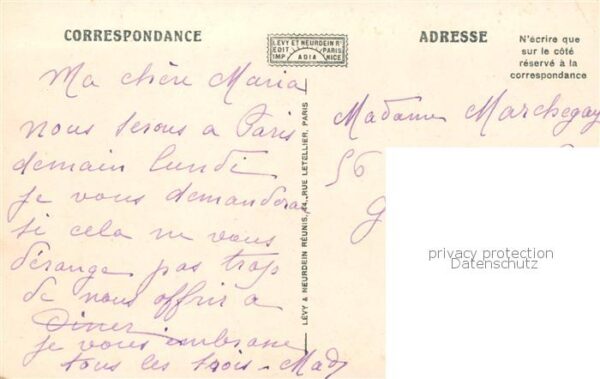 CORRESPONDANCE
LÉVY ET NEURDEIN Rs
EDIT PARIS
IMP ADIA NICE
ADRESSE
N'écrire que
sur le côté
réservé à la
correspondance
Ma chère Maria
nous serons a Paris
demain lundi
je vous demanderai
si cela ne vous
dérange pas trop
de nous offrir a
Diner.
je vous embrasse
tous les trois - Mad
LÉVY & NEURDEIN RÉUNIS, 44, RUE LETELLIER, PARIS
Madame Marchegay
56
G
privacy protection
Datenschutz